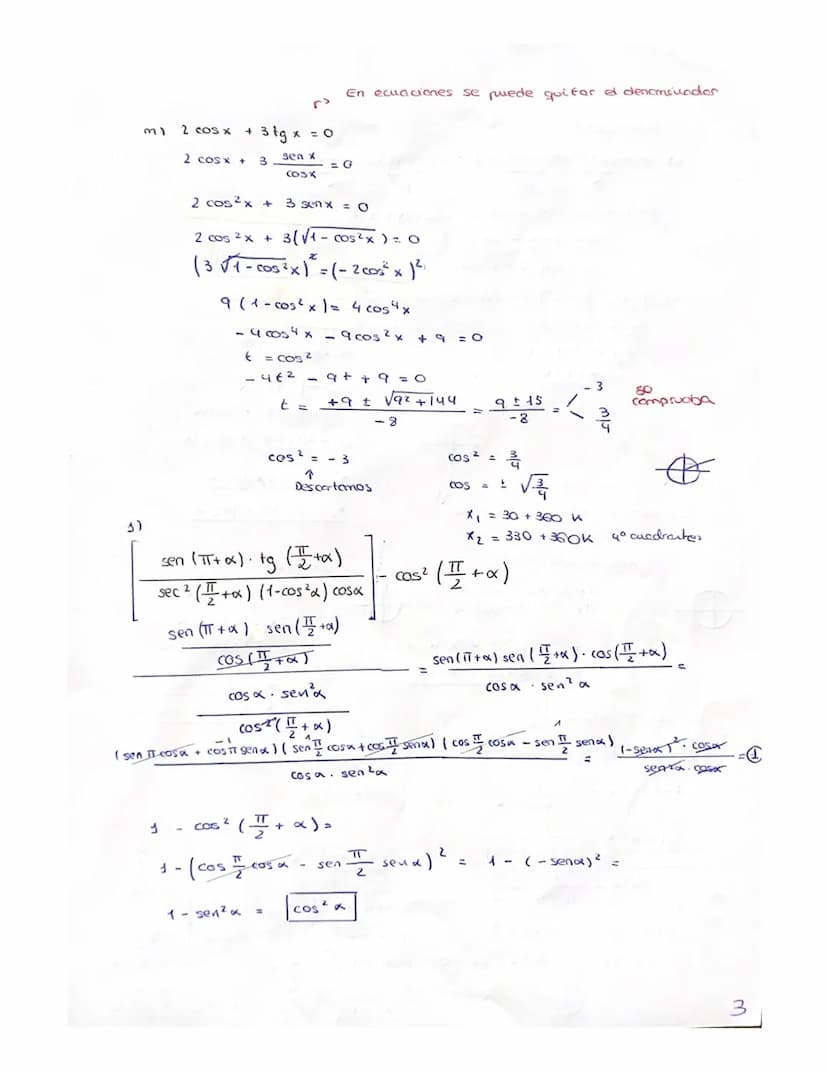 En ecuaciones se puede quitar el denominador
m) 2 cosx + 3 tg x = 0
2 cosx + 3 sen x / cosx = 0
2 cos²x + 3 senx = 0
2 cos²x + 3(√1 - cos²x) = 0
(3 √1-cos²x)² = (-2cos²x)²
9 (1-cos²x) = 4cos⁴x
- 4cos⁴x - 9cos²x + 9 = 0
t = cos²
- 4t² - 9t + 9 = 0
t = +9 ± √9²+144 / -8 = 9 ± 15 / -8 = -3 3/4 se comprueba
cos² = -3 cos² = 3/4
↑ cos = ± √3/4
Descartamos
x₁ = 30 + 360 K
x₂ = 330 + 360K 4º cuadrantes
1)
[ sen (π+α) · tg (π/2+α) / sec² (π/2+α) (1-cos²α) cosα ] - cos² (π/2+α)
sen (π+α) sen (π/2+α) / cos (π/2+α) / cosα · sen²α / cos² (π/2+α) = sen(π+α) sen (π/2+α) · cos(π/2+α) / cosα · sen²α =
(sen π cosα + cosπ senα) (sen π/2 cosα + cos π/2 senα) (cos π/2 cosα - sen π/2 senα) / cosα · sen²α = (-senα)² · cosα / sen²α · cosα = 1
1 - cos² (π/2 + α) =
1 - (cos π/2 cosα - sen π/2 senα)² = 1 - (-senα)² =
1 - sen²α = cos²α
3